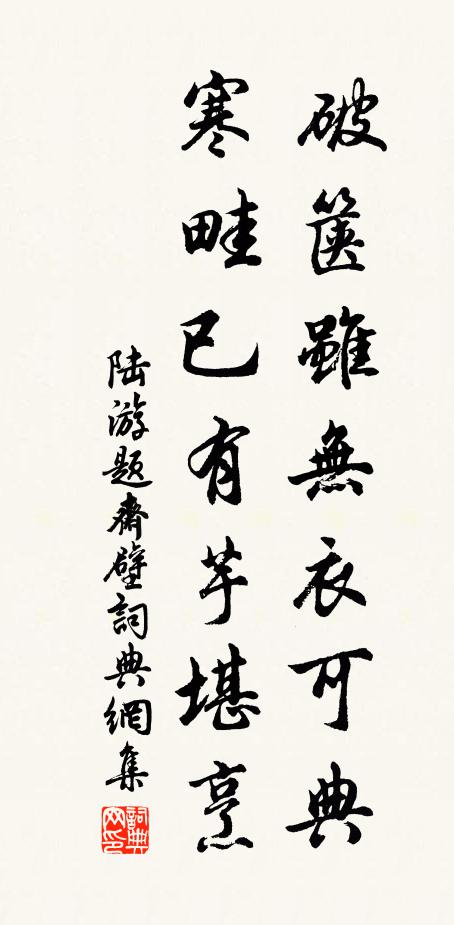 破篋雖無衣可典
寒畦已有芋堪烹
陆游題齋壁詞典網集
詞典网印